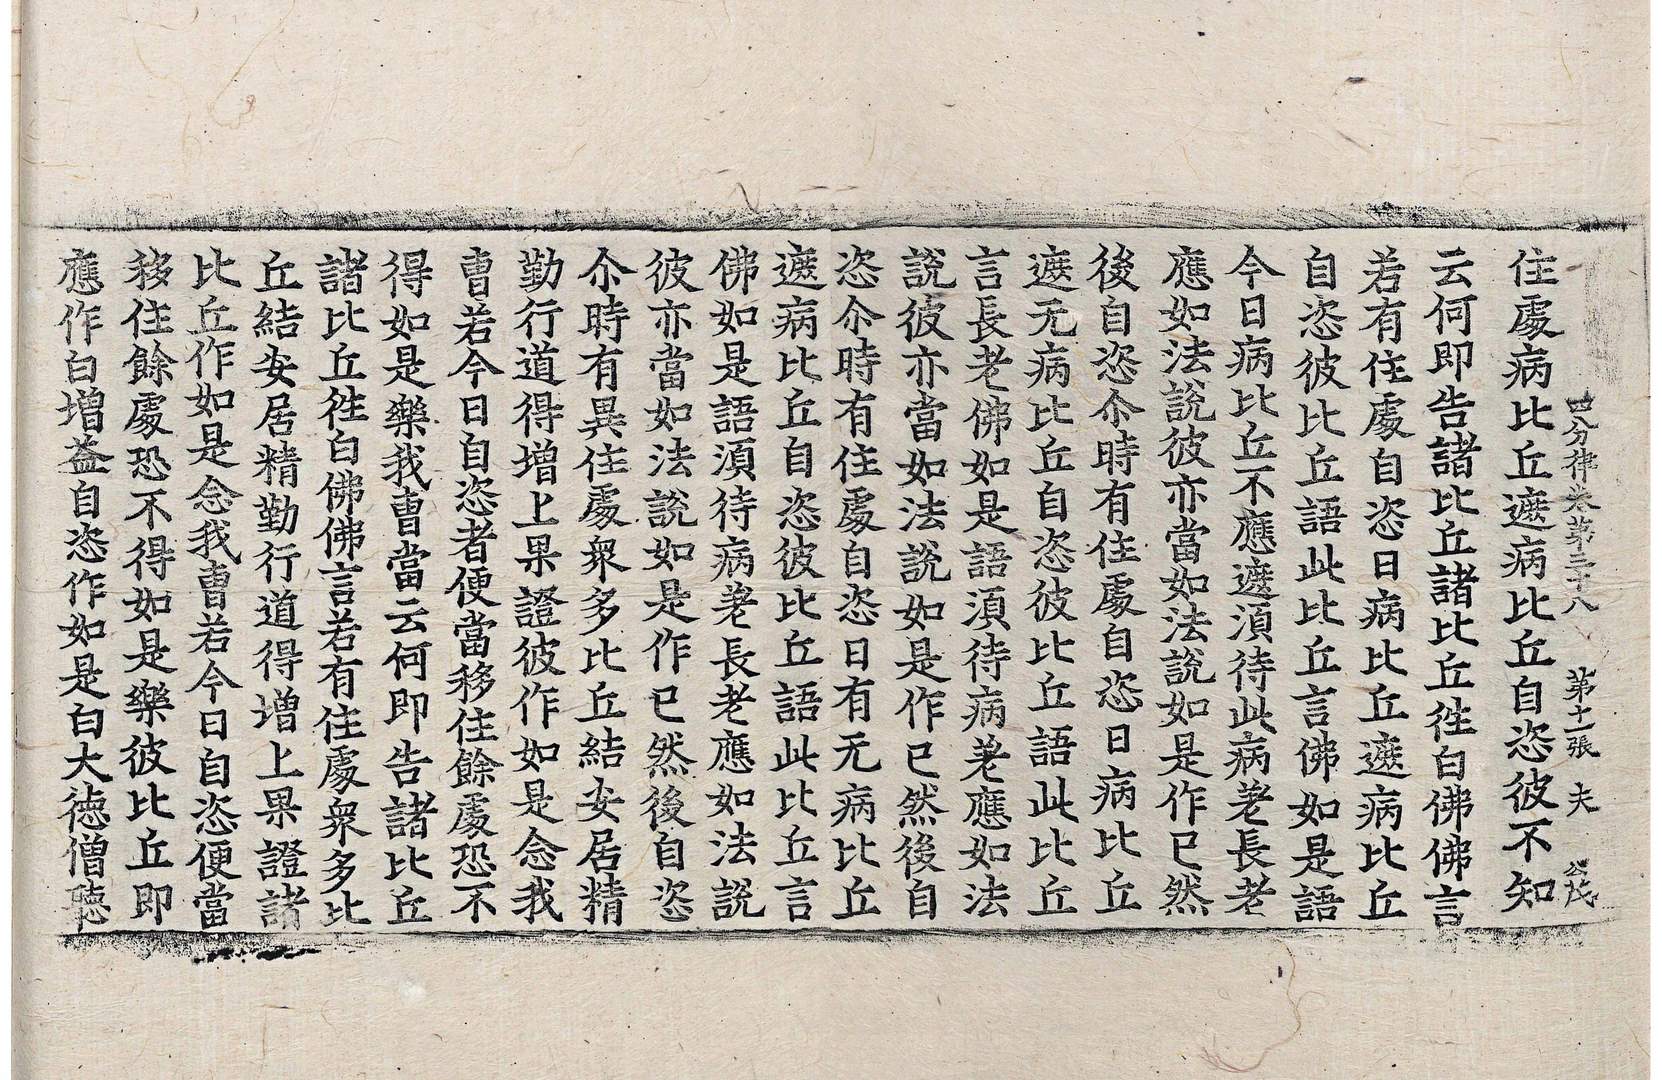 四分律卷第三十八 第十一張 夫 公茂
住處病比丘遮病比丘自恣彼不知
云何即告諸比丘諸比丘徃白佛佛言
若有住處自恣日病比丘遮病比丘
自恣彼比丘語此比丘言佛如是語
今日病比丘不應遮湏待此病荖長老
應如法說彼亦當如法說如是作已然
後自恣尒時有住處自恣日病比丘
遮无病比丘自恣彼比丘語此比丘
言長老佛如是語湏待病荖應如法
說彼亦當如法說如是作已然後自
恣尒時有住處自恣日有无病比丘
遮病比丘自恣彼比丘語此比丘言
佛如是語湏待病荖長老應如法說
彼亦當如法說如是作已然後自恣
尒時有異住處衆多比丘結安居精
勤行道得增上果證彼作如是念我
曹若今日自恣者便當移住餘處恐不
得如是樂我曹當云何即告諸比丘
諸比丘徃白佛佛言若有住處衆多比
丘結安居精勤行道得增上果證諸
比丘作如是念我曹若今日自恣便當
移住餘處恐不得如是樂彼比丘即
應作白增益自恣作如是白大德僧聽